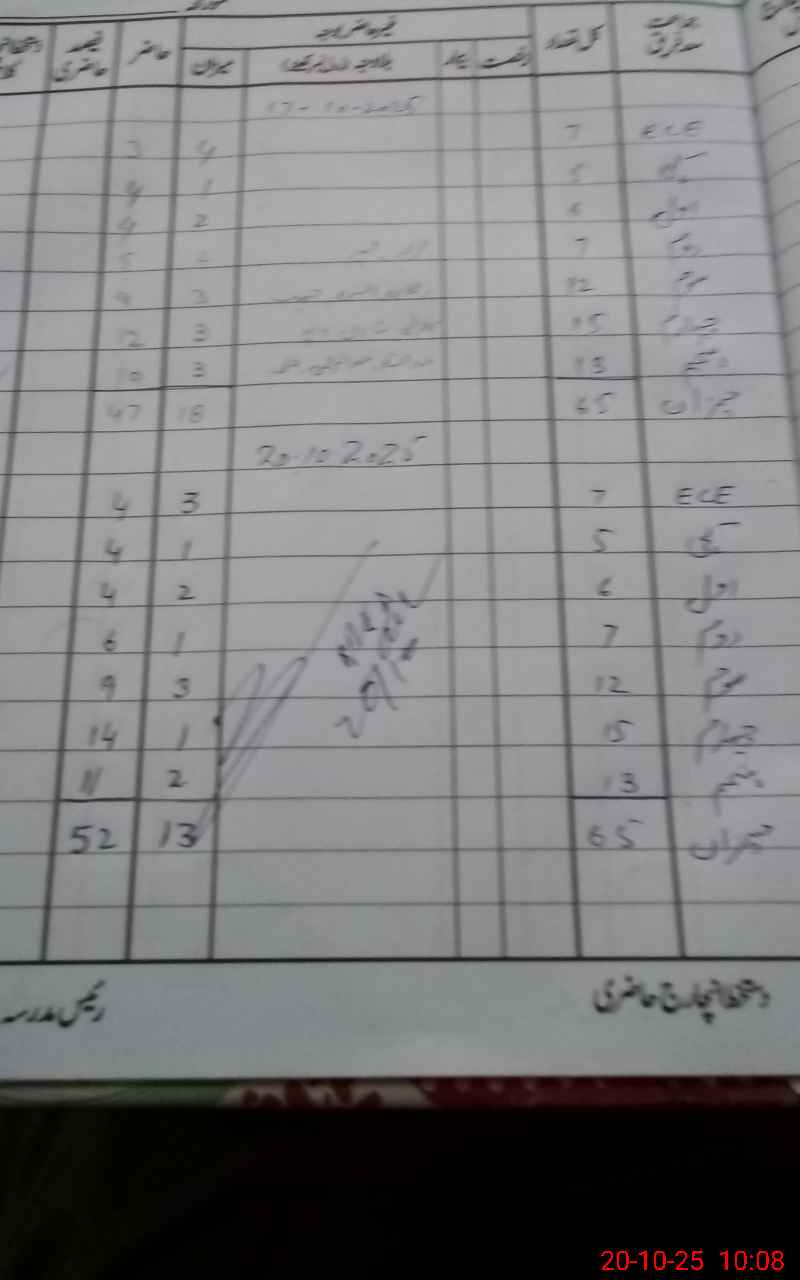 جماعت معہ فریق کل تعداد رخصت بیمار غیر حاضر بلاوجہ میزان حاضر فیصد حاضری
17-10-2025
ECE 7 4 3
کچی 5 1 4
اول 6 2 4
دوم 7 2 5
سوم 12 3 9
چہارم 15 3 12
پنجم 13 3 10
میزان 65 18 47
20-10-2025
ECE 7 3 4
کچی 5 1 4
اول 6 2 4
دوم 7 1 6
سوم 12 3 9
چہارم 15 1 14
پنجم 13 2 11
میزان 65 13 52
دستخط انچارج حاضری رئیس مدرسہ
20-10-25 10:08